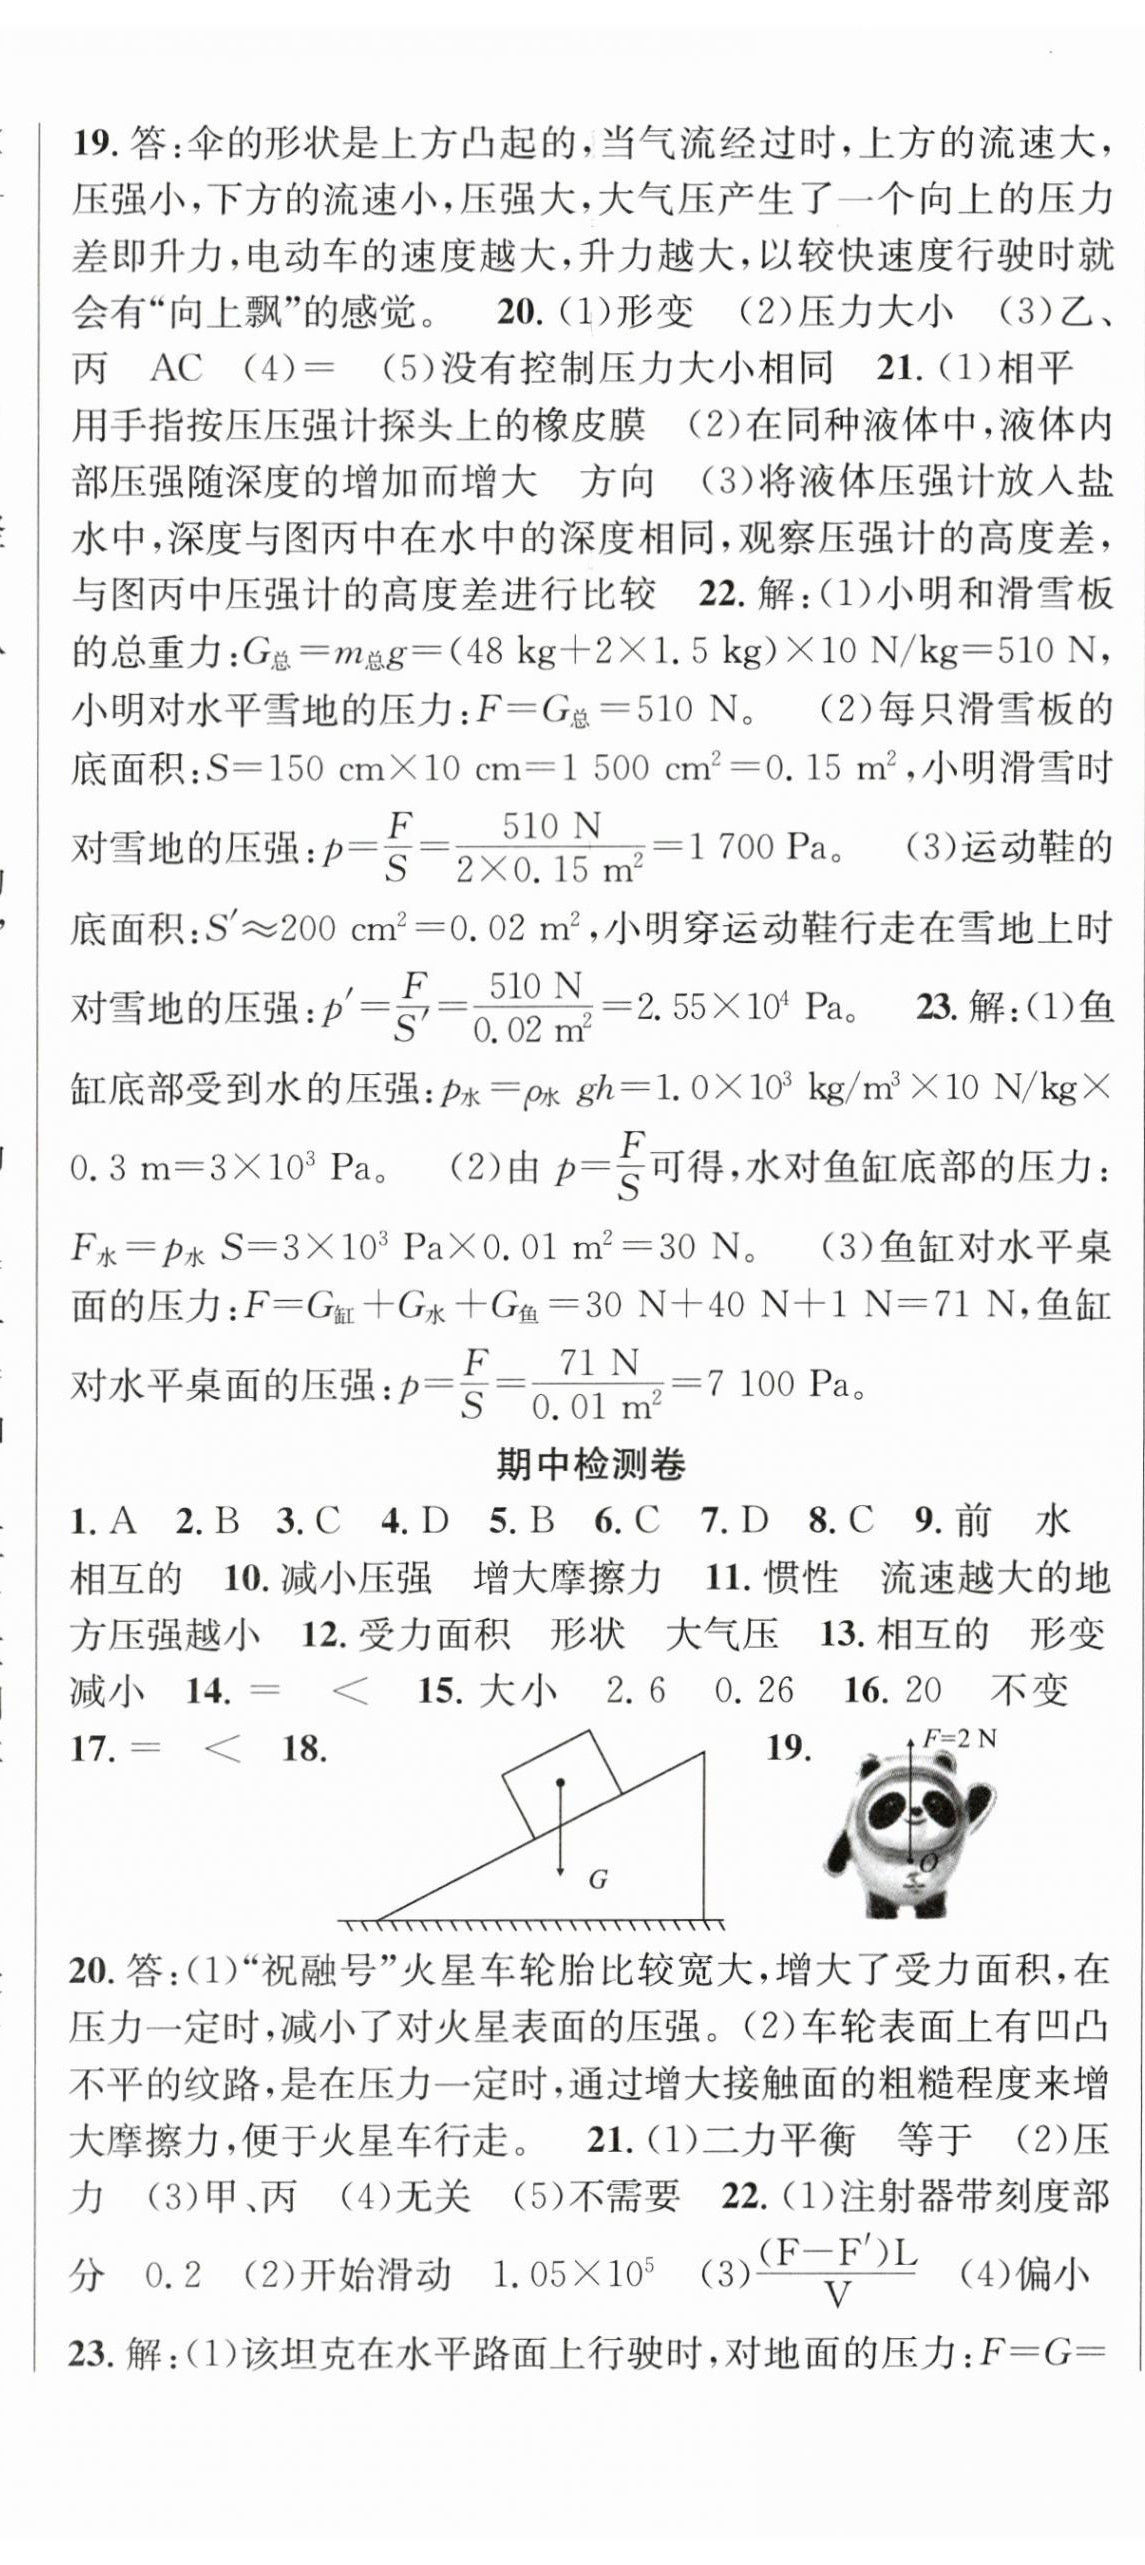 19. 答:伞的形状是上方凸起的,当气流经过时,上方的流速大,
压强小,下方的流速小,压强大,大气压产生了一个向上的压力
差即升力,电动车的速度越大,升力越大,以较快速度行驶时就
会有“向上飘”的感觉。 20. (1)形变 (2)压力大小 (3)乙、
丙 AC (4)= (5)没有控制压力大小相同 21. (1)相平
用手指按压压强计探头上的橡皮膜 (2)在同种液体中,液体内
部压强随深度的增加而增大 方向 (3)将液体压强计放入盐
水中,深度与图丙中在水中的深度相同,观察压强计的高度差,
与图丙中压强计的高度差进行比较 22. 解:(1)小明和滑雪板
的总重力:G总=m总g=(48 kg+2×1.5 kg)×10 N/kg=510 N,
小明对水平雪地的压力:F=G总=510 N。 (2)每只滑雪板的
底面积:S=150 cm×10 cm=1 500 cm²=0.15 m²,小明滑雪时
对雪地的压强:p=F/S=510 N/(2×0.15 m²)=1 700 Pa。 (3)运动鞋的
底面积:S′≈200 cm²=0.02 m²,小明穿运动鞋行走在雪地上时
对雪地的压强:p′=F/S′=510 N/0.02 m²=2.55×10⁴ Pa。 23. 解:(1)鱼
缸底部受到水的压强:p水=ρ水 gh=1.0×10³ kg/m³×10 N/kg×
0.3 m=3×10³ Pa。 (2)由 p=F/S可得,水对鱼缸底部的压力:
F水=p水 S=3×10³ Pa×0.01 m²=30 N。 (3)鱼缸对水平桌
面的压力:F=G缸+G水+G鱼=30 N+40 N+1 N=71 N,鱼缸
对水平桌面的压强:p=F/S=71 N/0.01 m²=7 100 Pa。
期中检测卷
1. A 2. B 3. C 4. D 5. B 6. C 7. D 8. C 9. 前 水
相互的 10. 减小压强 增大摩擦力 11. 惯性 流速越大的地
方压强越小 12. 受力面积 形状 大气压 13. 相互的 形变
减小 14. = < 15. 大小 2.6 0.26 16. 20 不变
17. = < 18. G 19. F=2 N O
20. 答:(1)“祝融号”火星车轮胎比较宽大,增大了受力面积,在
压力一定时,减小了对火星表面的压强。(2)车轮表面上有凹凸
不平的纹路,是在压力一定时,通过增大接触面的粗糙程度来增
大摩擦力,便于火星车行走。 21. (1)二力平衡 等于 (2)压
力 (3)甲、丙 (4)无关 (5)不需要 22. (1)注射器带刻度部
分 0.2 (2)开始滑动 1.05×10⁵ (3)(F−F′)L/V (4)偏小
23. 解:(1)该坦克在水平路面上行驶时,对地面的压力:F=G=